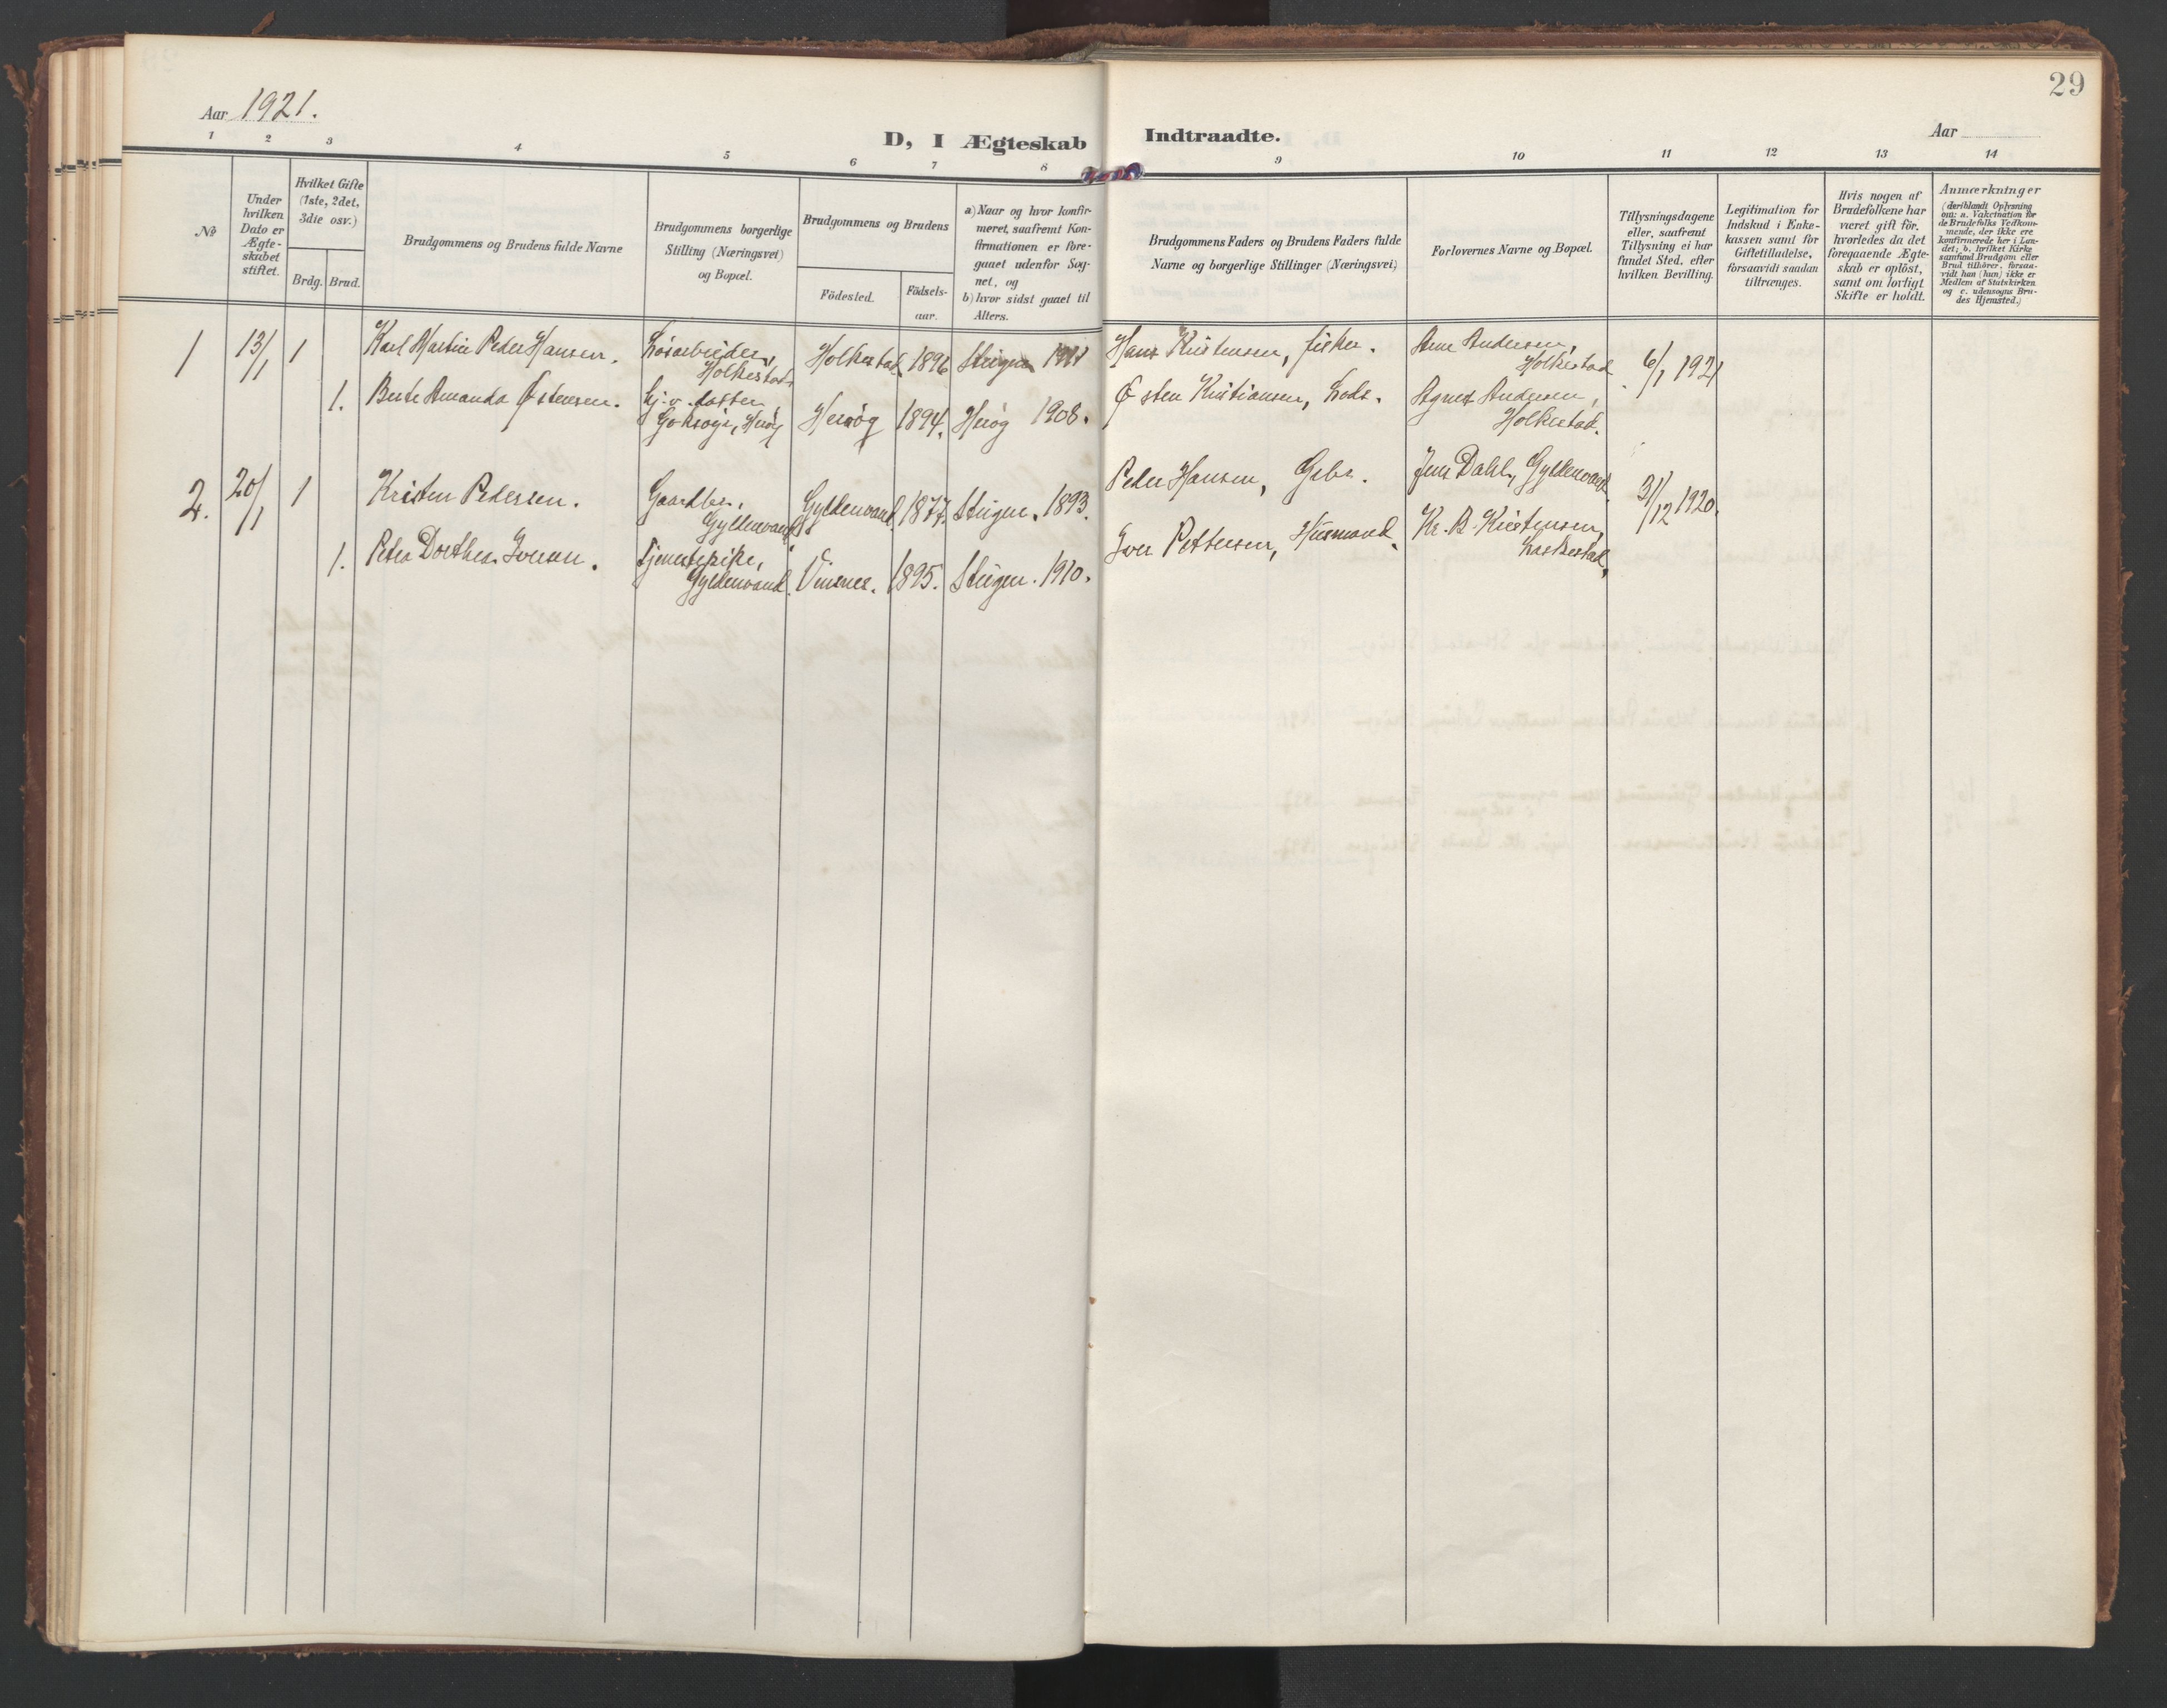 29
Aar 1921.
Aar
D, I Ægteskab Indtraadte.
1 2 3 4 5 6 7 8 9 10 11 12 13 14
№
Under
hvilken
Dato er
Ægte-
skabet
stiftet.
Hvilket Gifte
(1ste, 2det,
3die osv.)
Brdg. Brud.
Brudgommens og Brudens fulde Navne
Brudgommens borgerlige
Stilling (Næringsvei)
og Bopæl.
Brudgommens og Brudens
Födested.
Födsels-
aar.
a) Naar og hvor konfir-
meret, saafremt Kon-
firmationen er fore-
gaaet udenfor Sog-
net, og
b) hvor sidst gaaet til
Alters.
Brudgommens Faders og Brudens Faders fulde
Navne og borgerlige Stillinger (Næringsvei)
Forlovernes Navne og Bopæl.
Tillysningsdagene
eller, saafremt
Tillysning ei har
fundet Sted, efter
hvilken Bevilling.
Legitimation for
Indskud i Enke-
kassen samt for
Giftetilladelse,
forsaavidt saadan
tiltrænges.
Hvis nogen af
Brudefolkene har
været gift för,
hvorledes da det
foregaaende Ægte-
skab er oplöst,
samt om lovligt
Skifte er holdt.
Anmærkninger
(deriblandt Oplysning
om: a. Vakcination for
de Brudefolks Vedkom-
mende, der ikke ere
konfirmerede her i Lan-
det; b. hvilket Kirke-
samfund Brudgom eller
Brud tilhörer, forsaa-
vidt han (hun) ikke er
Medlem af Statskirken
og c. udensogns Bru-
des Hjemsted.)
1 13/1 1 Karl Martin Peder Hansen. Løsarbeider, Holkestad 1896 Steigen 1911 Hans Kristensen, fisker. Arne Andersen, 6/1 1921
Holkestad Holkestad
1. Berte Amanda Østensen. datter Herøy 1894. Herøy 1908. Østen Kristiansen, Lods. Agnes Andersen,
Herøy Holkestad.
2. 20/1 1 Kristen Pedersen. Gaardbr., Gyldenvand 1877. Steigen. 1893. Peder Hansen, Gbr. Jens Dahl, Gyldenvand. 31/12 1920.
Gyldenvand
1. Petra Dorthea Iversen. Tjenestepike, Vinsnes. 1895. Steigen. 1910. Iver Pettersen, Husmand. Kr. B. Kristensen,
Gyldenvand. Laskestad.